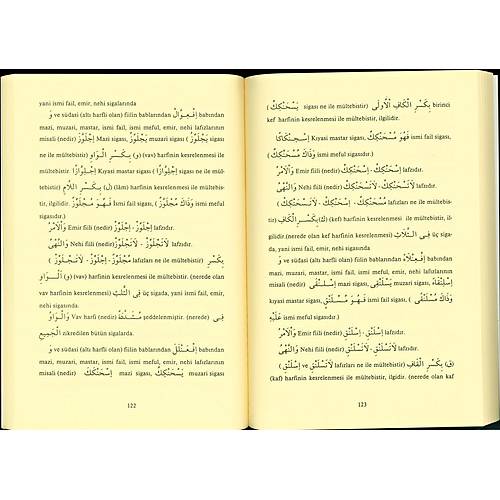 yani ismi fail, emir, nehi sigalarında
و ve südasi (altı harfli olan) fiilin bablarından اِفْعِوَّالٌ babından
mazi, muzari, mastar, ismi fail, ismi meful, emir, nehi lafızlarının
misali (nedir) اِجْلَوَّزَ Mazi sigası, يَجْلَوِّزُ muzari sigası (يَجْلَوِّزُ sigası
ne ile mültebistir) بِكَسْرِ الْوَاوِ (و) (vav) harfinin kesrelenmesi ile
mültebistir اِجْلِوَّازًا Kıyasi mastar sigası (اِجْلِوَّازًا sigası ne ile mül-
tebistir) بِكَسْرِ اللَّامِ (ل) (lâm) harfinin kesrelenmesi ile mültebis-
tir, ilgilidir. فَهُوَ مُجْلَوِّزٌ İsmi fail sigası, (وَذَاكَ مُجْلَوَّزٌ ismi meful
sigasıdır.)
وَالْاَمْرُ Emir fiili (nedir) اِجْلَوِّزْ - اِجْلَوِّزْ lafzıdır.
وَالنَّهْىُ Nehi fiili (nedir) لَاتَجْلَوِّزْ - لَاتَجْلَوِّزْ lafzıdır.
(اِجْلَوِّزْ - لَاتَجْلَوِّزْ lafızları ne ile mültebistir) بِكَسْرِ
الْوَاوِ (و) (vav) harfinin kesrelenmesi ile mültebistir. (nerede olan
vav harfinin kesrelenmesi) فِى الثَّلٰثِ üç sigada, yani ismi fail, emir,
nehi sigasında.
وَالْوَاوُ Vav harfi (nedir) مُشَدَّدَةٌ şeddelenmiştir. (nerede) فِى
الْجَمِيعِ zikredilen bütün sigalarda.
و ve südasi (altı harfli olan) fiilin bablarından اِفْعَنْلَلَ babından
mazi, muzari, mastar, ismi fail, ismi meful, emir, nehi lafızlarının
misali (nedir) اِسْحَنْكَكَ mazi sigası, يَسْحَنْكِكُ muzari sigası
122
(يَسْحَنْكِكُ sigası ne ile mültebistir) بِكَسْرِ الْكَافِ الْاُولٰى birinci
kef harfinin kesrelenmesi ile mültebistir, ilgilidir.
اِسْحِنْكَاكًا Kıyasi mastar sigası, فَهُوَ مُسْحَنْكِكٌ ismi fail sigası,
(وَذَاكَ مُسْحَنْكَكٌ ismi meful sigasıdır.)
وَالْاَمْرُ Emir fiili (nedir) اِسْحَنْكِكْ - اِسْحَنْكِكْ lafzıdır.
وَالنَّهْىُ Nehi fiili (nedir) لَاتَسْحَنْكِكْ - لَاتَسْحَنْكِكْ lafzıdır.
(اِسْحَنْكِكْ - لَاتَسْحَنْكِكْ lafızları ne ile mültebistir)
بِكَسْرِ الْكَافِ (ك) (kef) harfinin kesrelenmesi ile mültebistir, il-
gilidir. (nerede olan kef harfinin kesrelenmesi) فِى الثَّلَاثِ üç siga-
da, yani ismi fail, emir, nehi sigasında
و ve südasi (altı harfli olan) fiilin bablarından اِفْعِنْلَاءٌ babından
mazi, muzari, mastar, ismi fail, ismi meful, emir, nehi lafızlarının
misali (nedir) اِسْلَنْقٰى mazi sigası, يَسْلَنْقِى muzari sigası, اِسْلِنْقَاءً
kıyasi mastar sigası, فَهُوَ مُسْلَنْقٍ ismi fail sigası, (وَذَاكَ مُسْلَنْقًى
عَلَيْهِ ismi meful sigasıdır.)
وَالْاَمْرُ Emir fiili (nedir) اِسْلَنْقِ - اِسْلَنْقِ lafzıdır.
وَالنَّهْىُ Nehi fiili (nedir) لَاتَسْلَنْقِ - لَاتَسْلَنْقِ lafzıdır.
(اِسْلَنْقِ ve لَاتَسْلَنْقِ lafızları ne ile mültebistir) بِكَسْرِ الْقَافِ (ق)
(kaf) harfinin kesrelenmesi ile mültebistir, ilgilidir. (nerede olan kaf
123